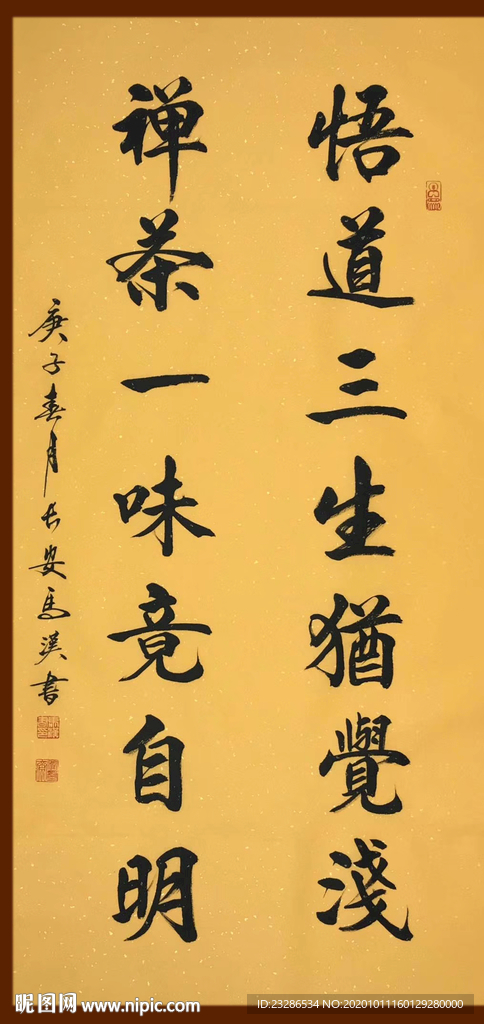 悟道三生猶覺淺
禅茶一味竟自明
庚子春月长安馬漢書
昵图网 www.nipic.com
ID:23286534 NO:20201011160129280000